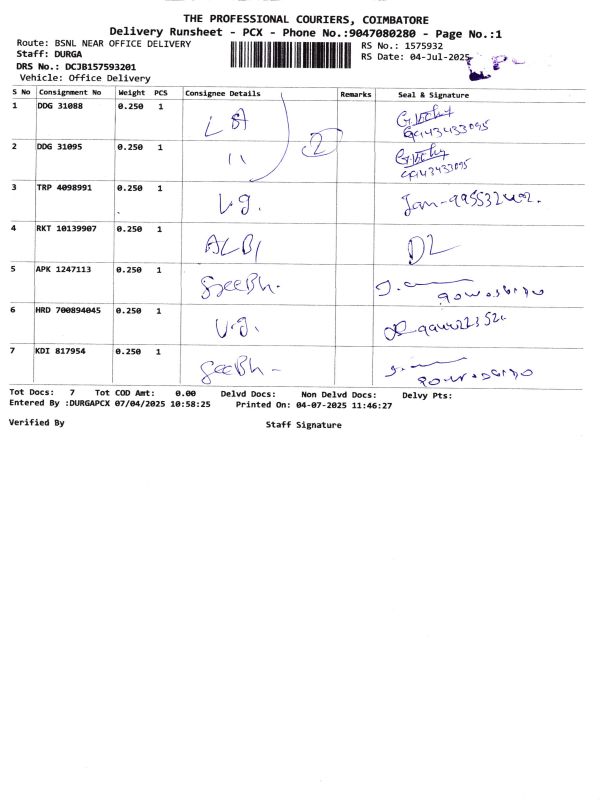 THE PROFESSIONAL COURIERS, COIMBATORE
Delivery Runsheet - PCX - Phone No.:9047080280 - Page No.:1
Route: BSNL NEAR OFFICE DELIVERY RS No.: 1575932
Staff: DURGA RS Date: 04-Jul-2025
DRS No.: DCJB157593201
Vehicle: Office Delivery
S No Consignment No Weight PCS Consignee Details Remarks Seal & Signature
1 DDG 31088 0.250 1
2 DDG 31095 0.250 1 11 2
3 TRP 4098991 0.250 1 V.g.
4 RKT 10139907 0.250 1 DL
5 APK 1247113 0.250 1 SreeBh.
6 HRD 700894045 0.250 1 V.g.
7 KDI 817954 0.250 1 SreeBh -
Tot Docs: 7 Tot COD Amt: 0.00 Delvd Docs: Non Delvd Docs: Delvy Pts:
Entered By :DURGAPCX 07/04/2025 10:58:25 Printed On: 04-07-2025 11:46:27
Verified By Staff Signature